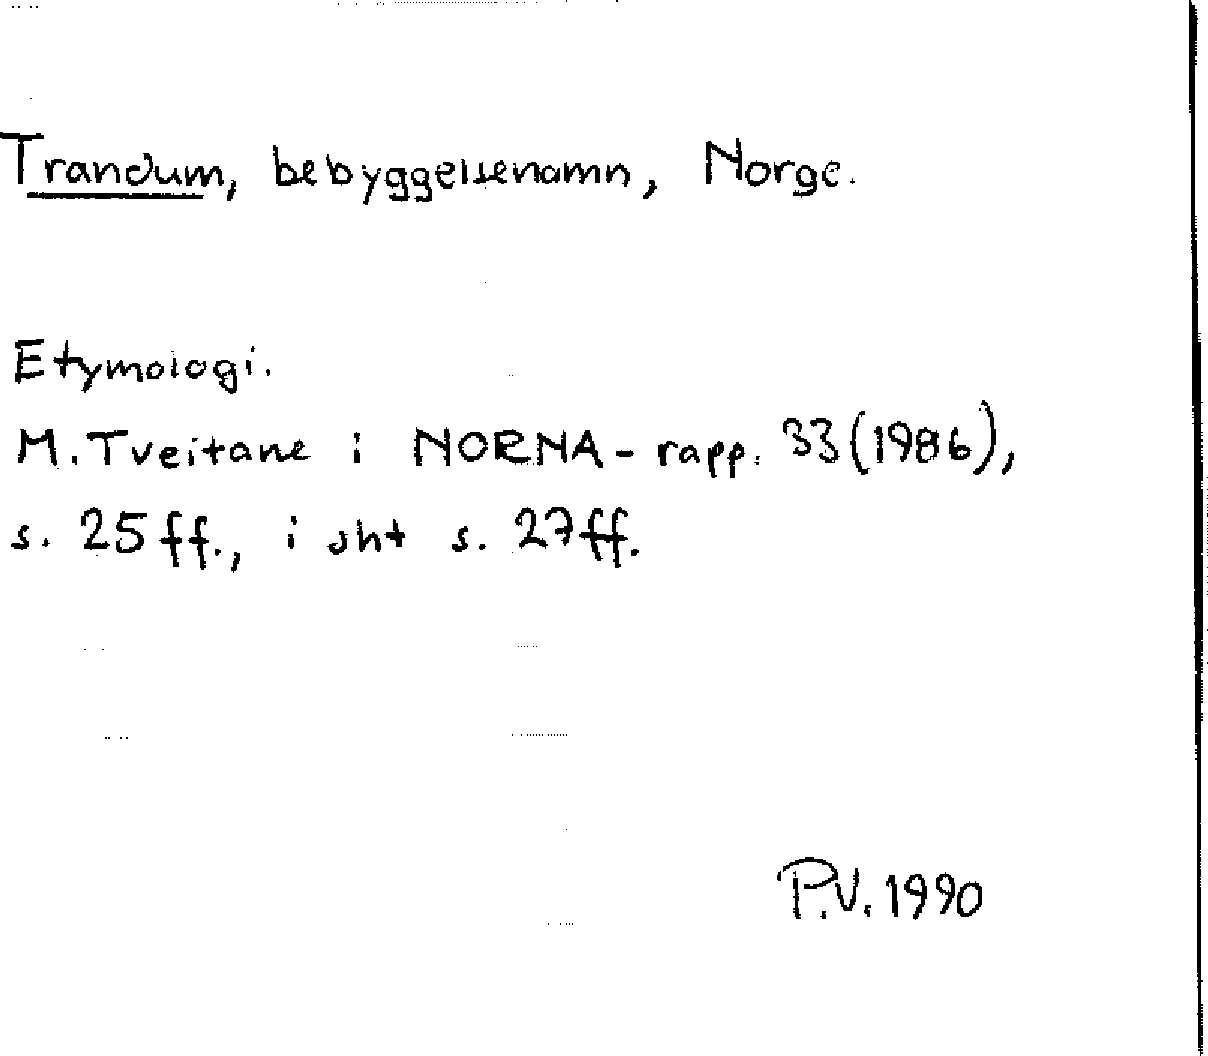 Trandum, bebyggelsenamn, Norge.
Etymologi.
M. Tveitane i NORNA-rapp. 33(1986),
s. 25ff., i sht s. 27ff.
P.V. 1990